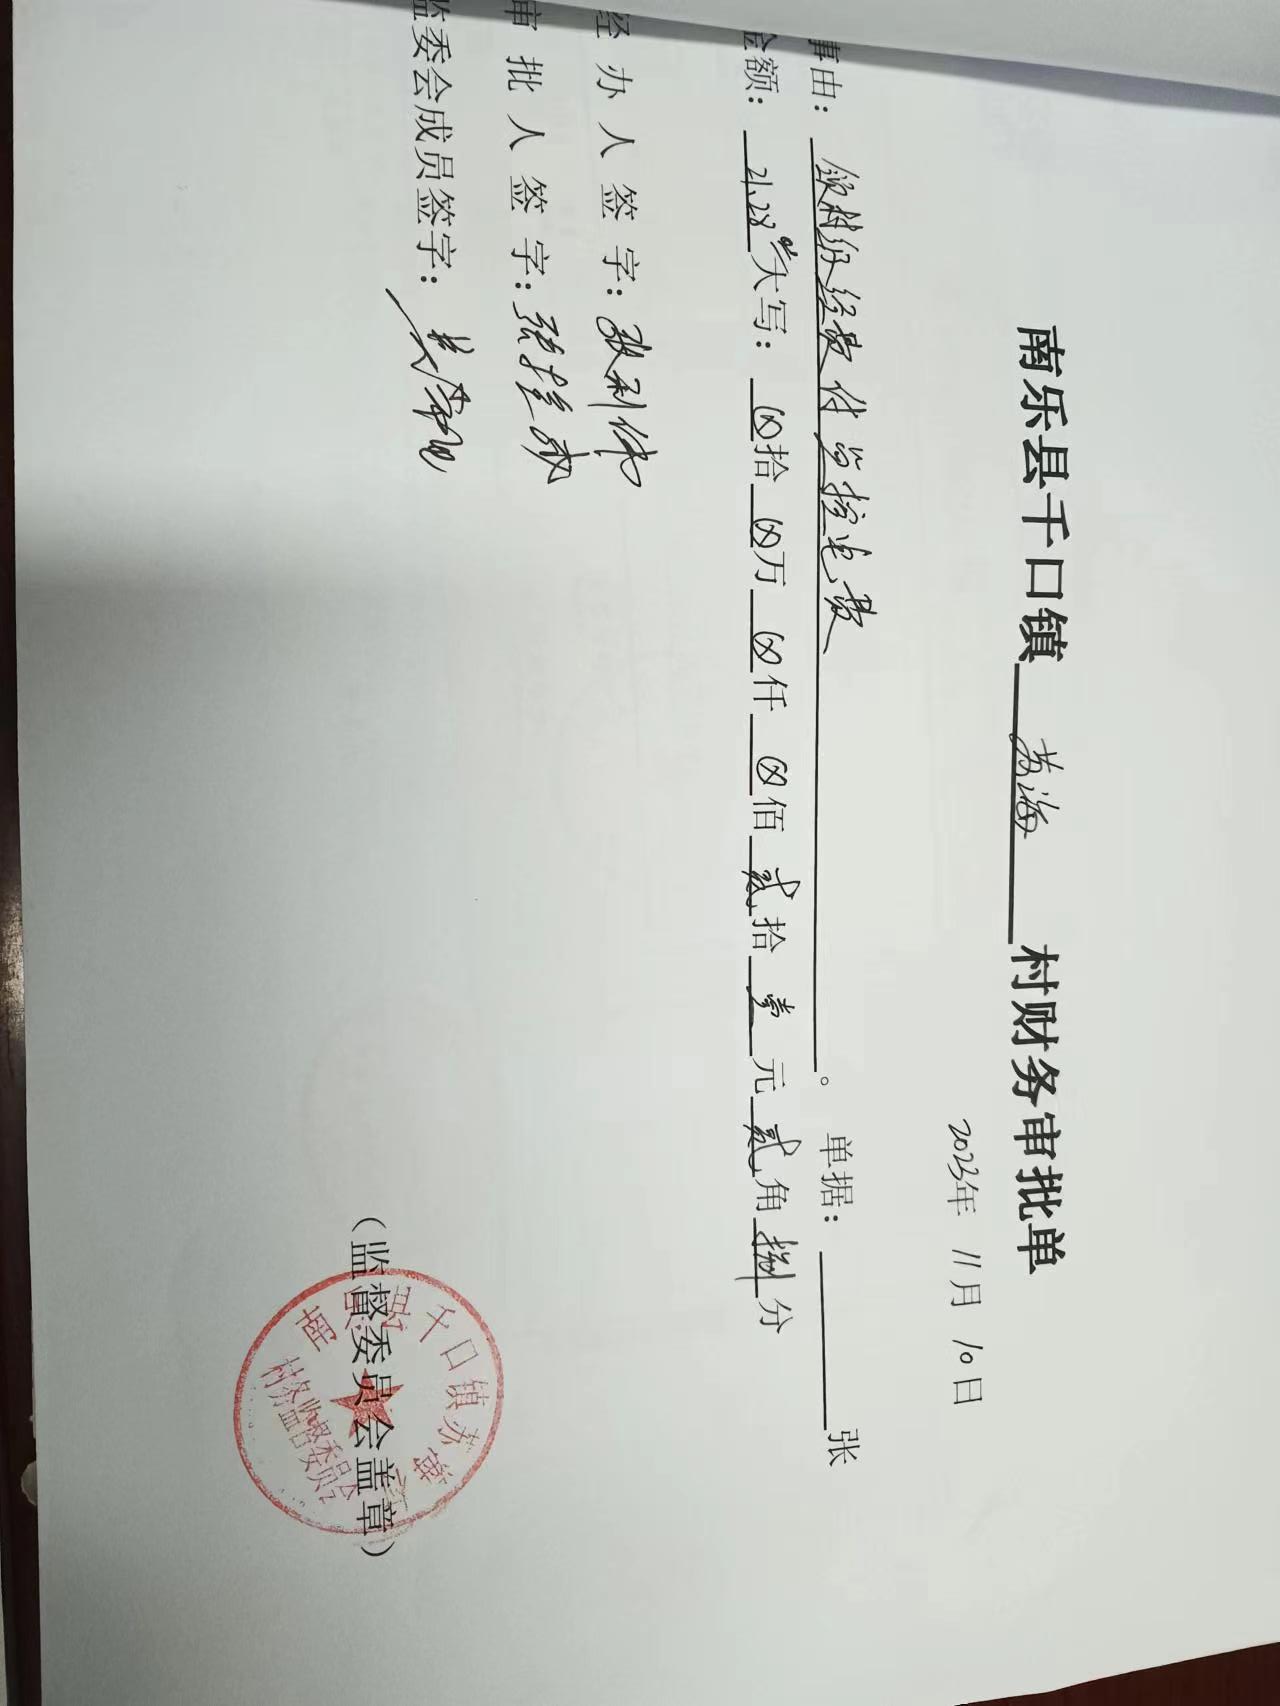 南乐县千口镇 苏海 村财务审批单
2023年 11月 10日
事由： 领村级经费付监控电费 。 单据： 张
金额： 21.28元 大写： ⊗拾 ⊗万 ⊗仟 ⊗佰 贰拾 壹元 贰角 捌分
经办人签字： 张利伟
审批人签字： 张
监委会成员签字：
（监督委员会盖章）
南乐县千口镇苏海村
村务监督委员会